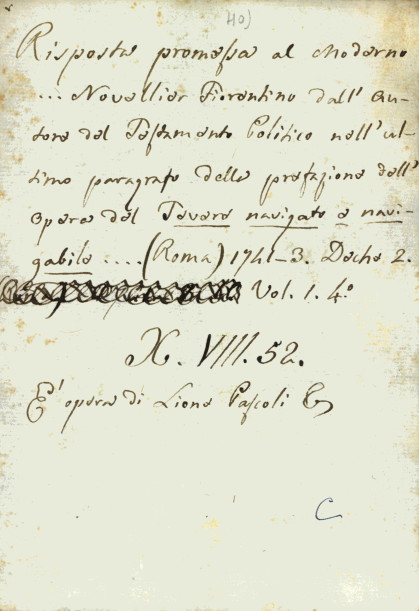 40)
Risposta promessa al Moderno
... Novellier Fiorentino dall' Au-
tore del Testamento Politico nell' ul-
timo paragrafo della prefazione dell'
Opera del Tevere navigato e navi-
gabile .... (Roma) 1741-3. Deche 2.
Vol. 1. 4º
X. VIII. 52.
E' opera di Lione Pascoli
C